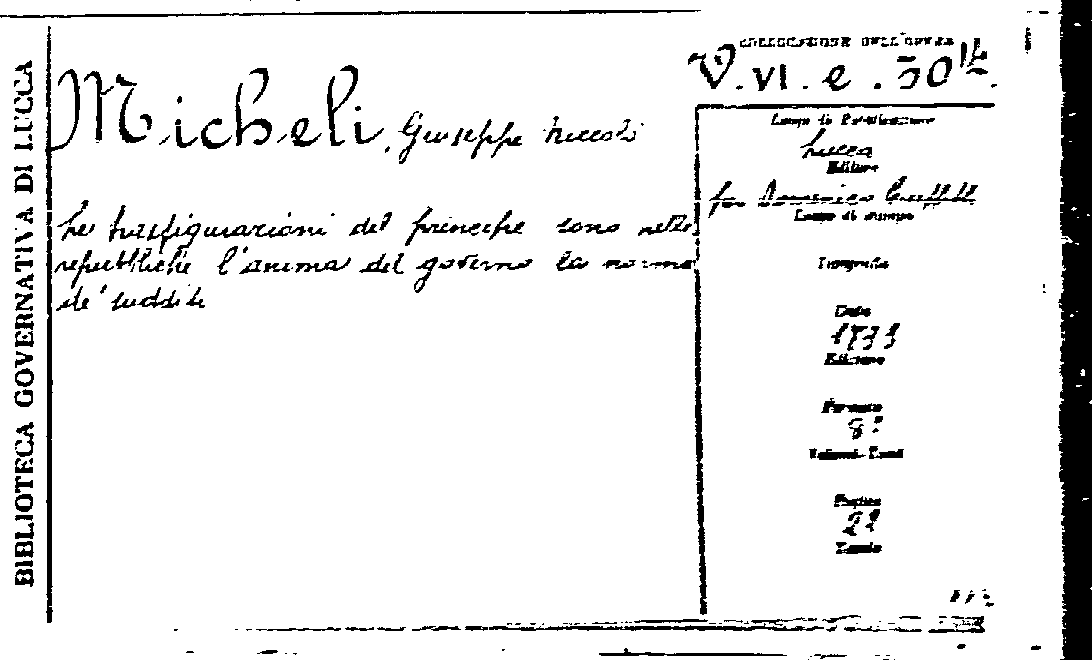 BIBLIOTECA GOVERNATIVA DI LUCCA
COLLOCAZIONE DELL'OPERA
V. VI. e. 30
Micheli, Giuseppe Niccolò
Le trasfigurazioni del principe sono nelle
repubbliche l'anima del governo la norma
de' sudditi
Luogo di Pubblicazione
Lucca
Editore
per Domenico
Luogo di stampa
Tipografia
Data
Edizione
Formato
8°
Volumi
Pagine
Tavole